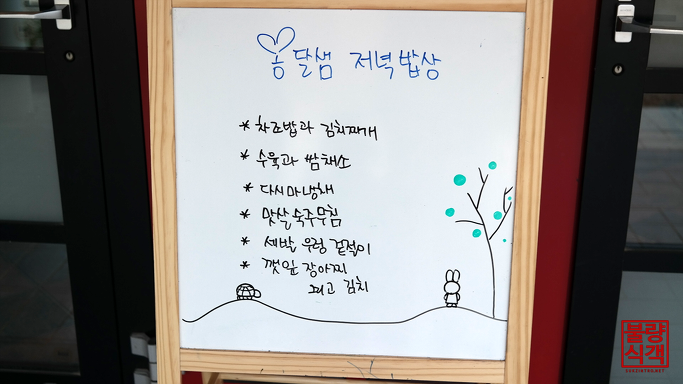 옹달샘 저녁밥상
* 차조밥과 김치찌개
* 수육과 쌈채소
* 다시마냉채
* 맛살숙주무침
* 세발우렁겉절이
* 깻잎장아찌
퍼고 김치
불량
식객